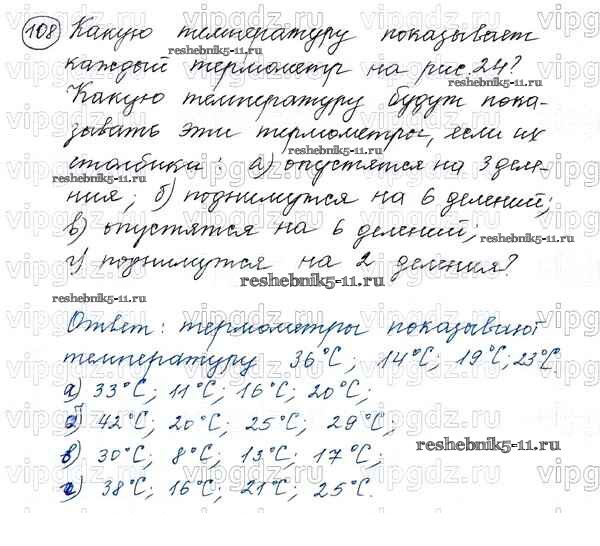 108 Какую температуру показывает
каждый термометр на рис. 24?
Какую температуру будут пока-
зывать эти термометры, если их
столбики: а) опустятся на 3 деле-
ния; б) поднимутся на 6 делений;
в) опустятся на 6 делений;
г) поднимутся на 2 деления?
Ответ: термометры показывают
температуру 36°С; 14°С; 19°С; 23°С.
а) 33°С; 11°С; 16°С; 20°С;
б) 42°С; 20°С; 25°С; 29°С;
в) 30°С; 8°С; 13°С; 17°С;
г) 38°С; 16°С; 21°С; 25°С.
vipgdz.ru
reshebnik5-11.ru